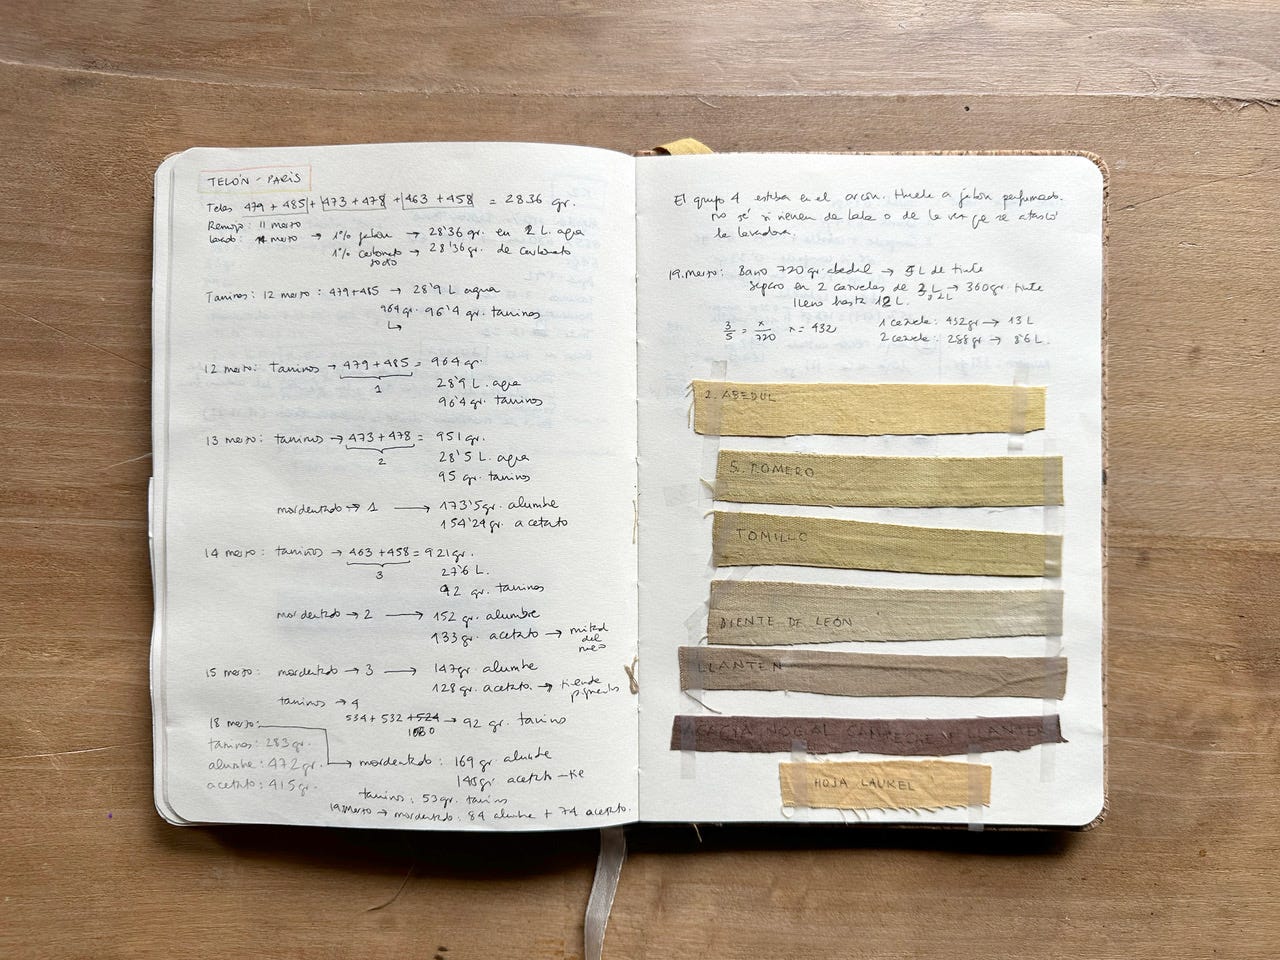 TELÓN - PARÍS
Telas 479 + 485 + 473 + 478 + 463 + 458 = 2836 gr.
Remojo: 11 marzo
lavado: marzo → 1% jabón → 28'36 gr. en 2 L. agua
1% carbonato → 28'36 gr. de carbonato
Taninos: 12 marzo: 479+485 → 28'9 L agua
964 gr. 96'4 gr. taninos
12 marzo: taninos → 479 + 485 = 964 gr.
1
28'9 L. agua
96'4 gr. taninos
13 marzo: taninos → 473 + 478 = 951 gr.
2
28'5 L. agua
95 gr. taninos
mordentado → 1 → 173'5 gr. alumbre
154'24 gr. acetato
14 marzo: taninos → 463 + 458 = 921 gr.
3
27'6 L.
92 gr. taninos
mordentado → 2 → 152 gr. alumbre
133 gr. acetato → mitad
del
15 marzo: mordentado → 3 → 147 gr. alumbre
128 gr. acetato. → tiende
pigmentos
taninos → 4
534 + 532 + 524 → 92 gr. tanino
18 marzo:
taninos: 283 gr.
alumbre: 472 gr. → mordentado: 169 gr. alumbre
acetato: 415 gr.
gr. acetato
taninos: 53 gr. tanins
19 marzo → mordentado: 84 alumbre + 74 acetato.
El grupo 4 estaba en el arcón. Huele a jabón perfumado.
no sé si vienen de lado o de la vez qe se atascó
la lavadora.
19. marzo: Baño 720 gr. abedul → 5 L de tinte
Separo en 2 cazuelas de L → 360 gr. tinte
lleno hasta 12 L.
3/5 = x/720 x = 432
1 cazuela: 432 gr → 13 L
2 cazuela: 288 gr → 8'6 L.
2. ABEDUL
5. ROMERO
TOMILLO
DIENTE DE LEÓN
LLANTEN
ACACIA NOGAL CAMPECHE Y LLANTEN
HOJA LAUREL